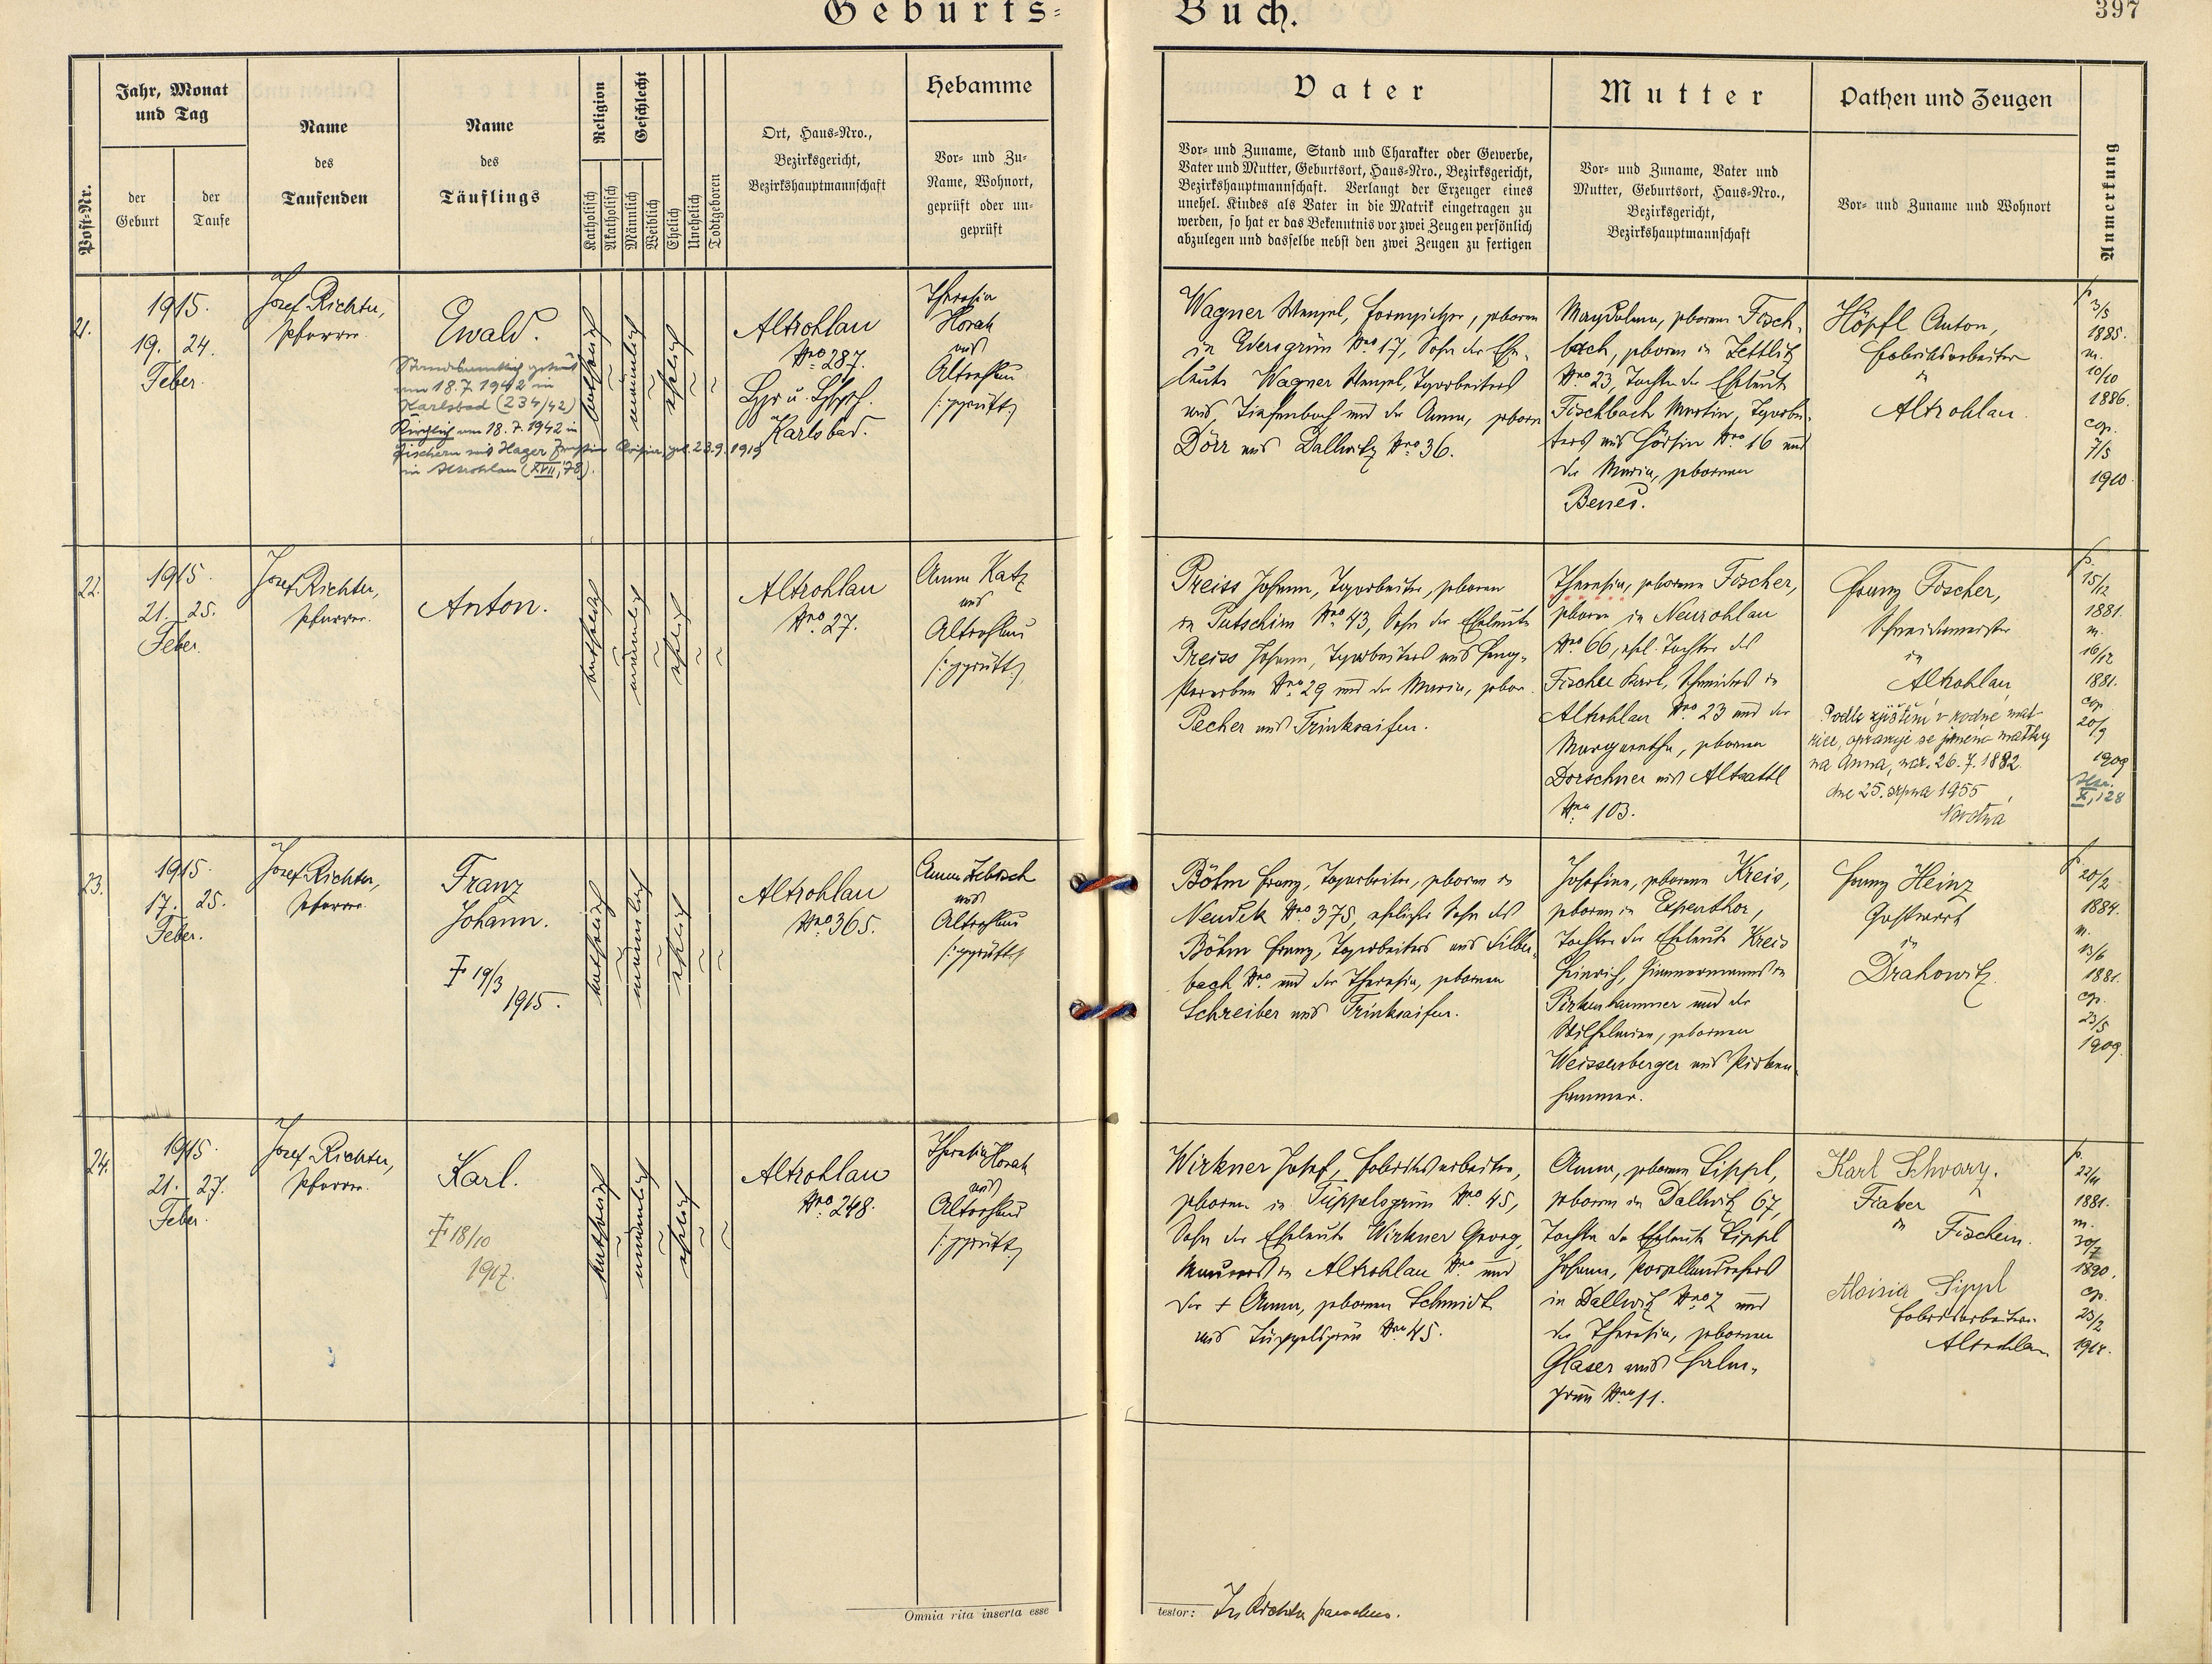 Geburts=
Buch.
397
Post-Nr.
Jahr, Monat
und Tag
der
Geburt
der
Taufe
Name
des
Taufenden
Name
des
Täuflings
Religion
Katholisch
Akatholisch
Geschlecht
Männlich
Weiblich
Ehelich
Unehelich
Todtgeboren
Ort, Haus-Nro.,
Bezirksgericht,
Bezirkshauptmannschaft
Hebamme
Vor- und Zu-
Name, Wohnort,
geprüft oder un-
geprüft
Vater
Vor- und Zuname, Stand und Charakter oder Gewerbe,
Vater und Mutter, Geburtsort, Haus-Nro., Bezirksgericht,
Bezirkshauptmannschaft. Verlangt der Erzeuger eines
unehel. Kindes als Vater in die Matrik eingetragen zu
werden, so hat er das Bekenntnis vor zwei Zeugen persönlich
abzulegen und dasselbe nebst den zwei Zeugen zu fertigen
Mutter
Vor- und Zuname, Vater und
Mutter, Geburtsort, Haus-Nro.,
Bezirksgericht,
Bezirkshauptmannschaft
Pathen und Zeugen
Vor- und Zuname und Wohnort
Anmerkung
21.
1915.
19. 24.
Feber.
Josef Richter,
Pfarrer.
Ewald.
Standesamtlich getraut
am 18.7.1942 in
Karlsbad (234/42)
Kirchlich am 18.7.1942 in
Fischern mit Hager geb. 23.9.1919
in Altrohlau (XVII, 78).
katholisch
männlich
ehelich
Altrohlau
Nro 287.
Karlsbad.
Theresia
Horak
aus
Altrohlau
/:geprüft:/
Wagner Wenzel, Formgießer, geboren
in Edersgrün Nro 17, Sohn der Ehe-
leute Wagner Wenzel, Tagarbeiters
aus Tiefenbach und der Anna, geboren
Dörr aus Dallwitz Nro 36.
Magdalena, geborene Fisch-
bach, geboren in Zettlitz
Nro 23, Tochter der Eheleute
Fischbach Martin, Tagarbei-
ters aus Nro 16 und
der Maria, geborenen
Benes.
Höpfl Anton,
Fabriksarbeiter
in
Altrohlau.
p.
3/5
1885.
m.
10/10
1886.
cop.
7/5
1910.
22.
1915.
21. 25.
Feber.
Josef Richter,
Pfarrer.
Anton.
katholisch
männlich
ehelich
Altrohlau
Nro 27.
Anna Katz
aus
Altrohlau
/:geprüft:/
Preiss Johann, Tagarbeiter, geboren
in Putschirn Nro 43, Sohn der Eheleute
Preiss Johann, Tagarbeiters aus
Nro 29 und der Maria, gebor.
Pecher aus Trinksaifen.
Theresia, geborene Fischer,
geboren in Neurohlau
Nro 66, ehel. Tochter des
Fischer Karl, Schneiders in
Altrohlau Nro 23 und der
Margaretha, geborenen
Dorschner aus Altsattl
Nro 103.
Franz Fischer,
Schneidermeister
in
Altrohlau
Podle zjištění v rodné mat-
rice, opravuje se jméno matky
na Anna, nar. 26.7.1882
dne 25. srpna 1955
Novotná
p.
15/12
1881.
m.
16/12
1881.
cop
20/9
1909
X, 128
23.
1915.
17. 25.
Feber.
Josef Richter,
Pfarrer.
Franz
Johann.
† 19/3
1915.
katholisch
männlich
ehelich
Altrohlau
Nro 365.
Anna
aus
Altrohlau
/:geprüft:/
Böhm Franz, Tagarbeiter, geboren in
Neudek Nro 375, ehelicher Sohn des
Böhm Franz, Tagarbeiters aus Silber-
bach Nro und der Theresia, geborenen
Schreiber aus Trinksaifen.
Josefine, geborene Kreis,
geboren in Espenthor,
Tochter der Eheleute Kreis
Heinrich, Zimmermanns in
Pirkenhammer und der
Wilhelmine, geborenen
Weissenberger aus Pirken-
hammer.
Franz Heinz
Gastwirt
in
Drahowitz.
p.
20/2
1884.
m.
13/6
1881.
cop.
23/5
1909.
24.
1915.
21. 27.
Feber.
Josef Richter,
Pfarrer.
Karl.
† 18/10
1917.
katholisch
männlich
ehelich
Altrohlau
Nro 248.
Theresia Horak
aus
Altrohlau
/:geprüft:/
Wirkner Josef, Fabriksarbeiter,
geboren in Tüppelsgrün Nro 45,
Sohn der Eheleute Wirkner Georg,
Maurers in Altrohlau Nro und
der † Anna, geborenen Schmidt
aus Tüppelsgrün Nro 45.
Anna, geborene Lippl,
geboren in Dallwitz 67,
Tochter der Eheleute Lippl
Johann, Porzellandrehers
in Dallwitz Nro 7 und
der Theresia, geborenen
Glaser aus Halm-
grün Nro 11.
Karl Schwarz.
Fiaker
in
Fischern.
Aloisia Lippl
Fabriksarbeiterin
Altrohlau
p.
22/11
1881.
m.
30/7
1890.
cop.
23/2
1914.
Omnia rita inserta esse
testor: Jos Richter parochus.